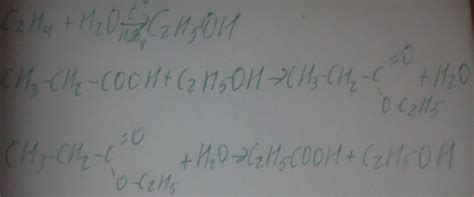 C2H4 + H2O t° → H2SO4 C2H5OH
CH3-CH2-COOH + C2H5OH → CH3-CH2-C =O O-C2H5 + H2O
CH3-CH2-C =O O-C2H5 + H2O → C2H5COOH + C2H5OH